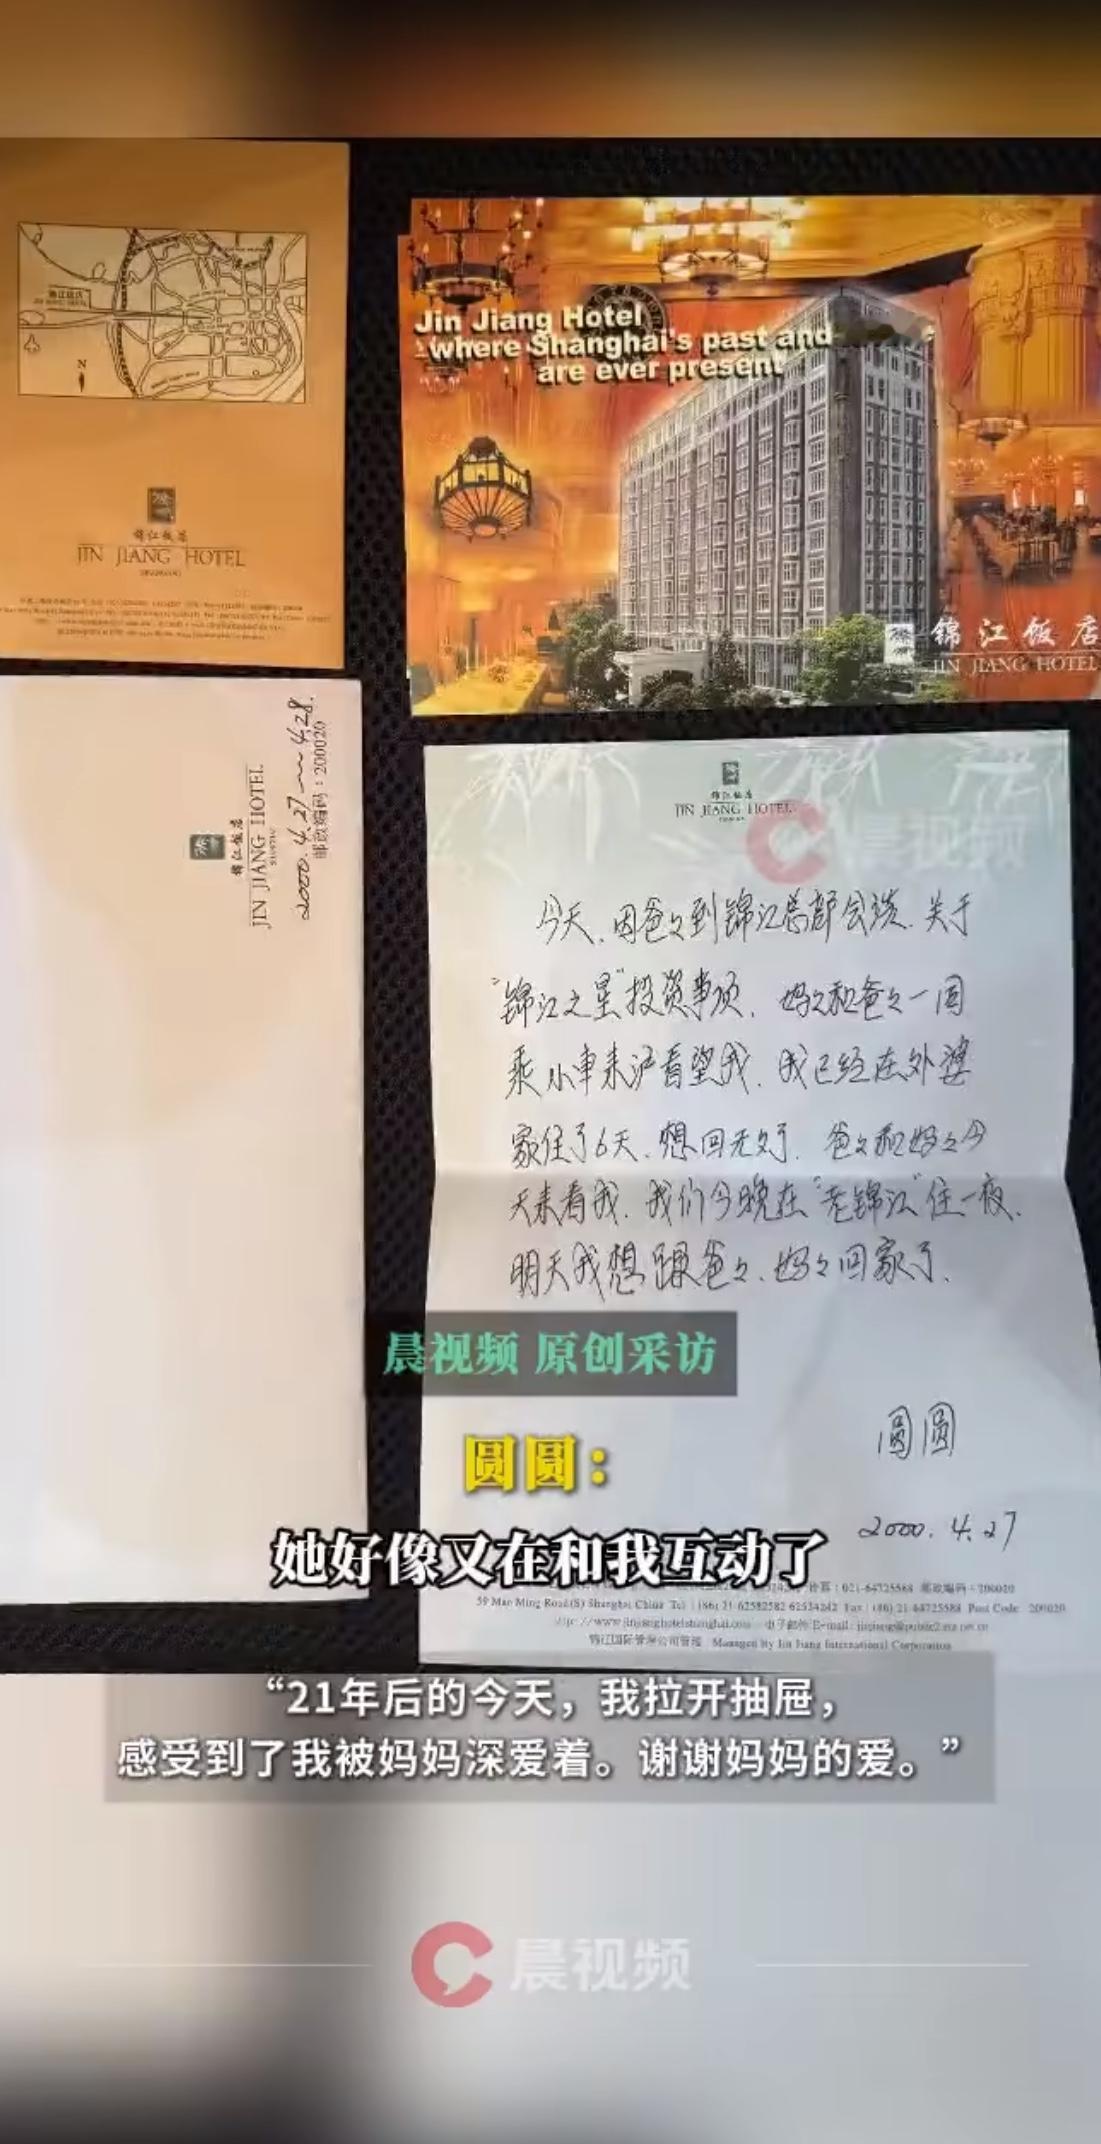 锦江饭店
JIN JIANG HOTEL
Jin Jiang Hotel
where Shanghai's past and
are ever present
锦江饭店
JIN JIANG HOTEL
2000.4.27—4.28.
邮政编码：200020
锦江饭店
JIN JIANG HOTEL
锦江饭店
JIN JIANG HOTEL
晨视频
今天、因爸々到锦江总部会谈、关于
“锦江之星”投资事项、妈々和爸々一同
乘小车来沪看望我、我已经在外婆
家住了6天、想回无夕了、爸々和妈々今
天来看我、我们今晚在“老锦江”住一夜、
明天我想跟爸々、妈々回家了、
圆圆
2000.4.27
晨视频 原创采访
圆圆：
她好像又在和我互动了
传真：021-64725588 邮政编码：200020
59 Mao Ming Road(S) Shanghai China Tel：(86) 21-62582582 62534242 Fax：(86) 21-64725588 Post Code：200020
锦江国际管理公司管理 Managed by Jin Jiang International Corporation
“21年后的今天，我拉开抽屉，
感受到了我被妈妈深爱着。谢谢妈妈的爱。”
晨视频